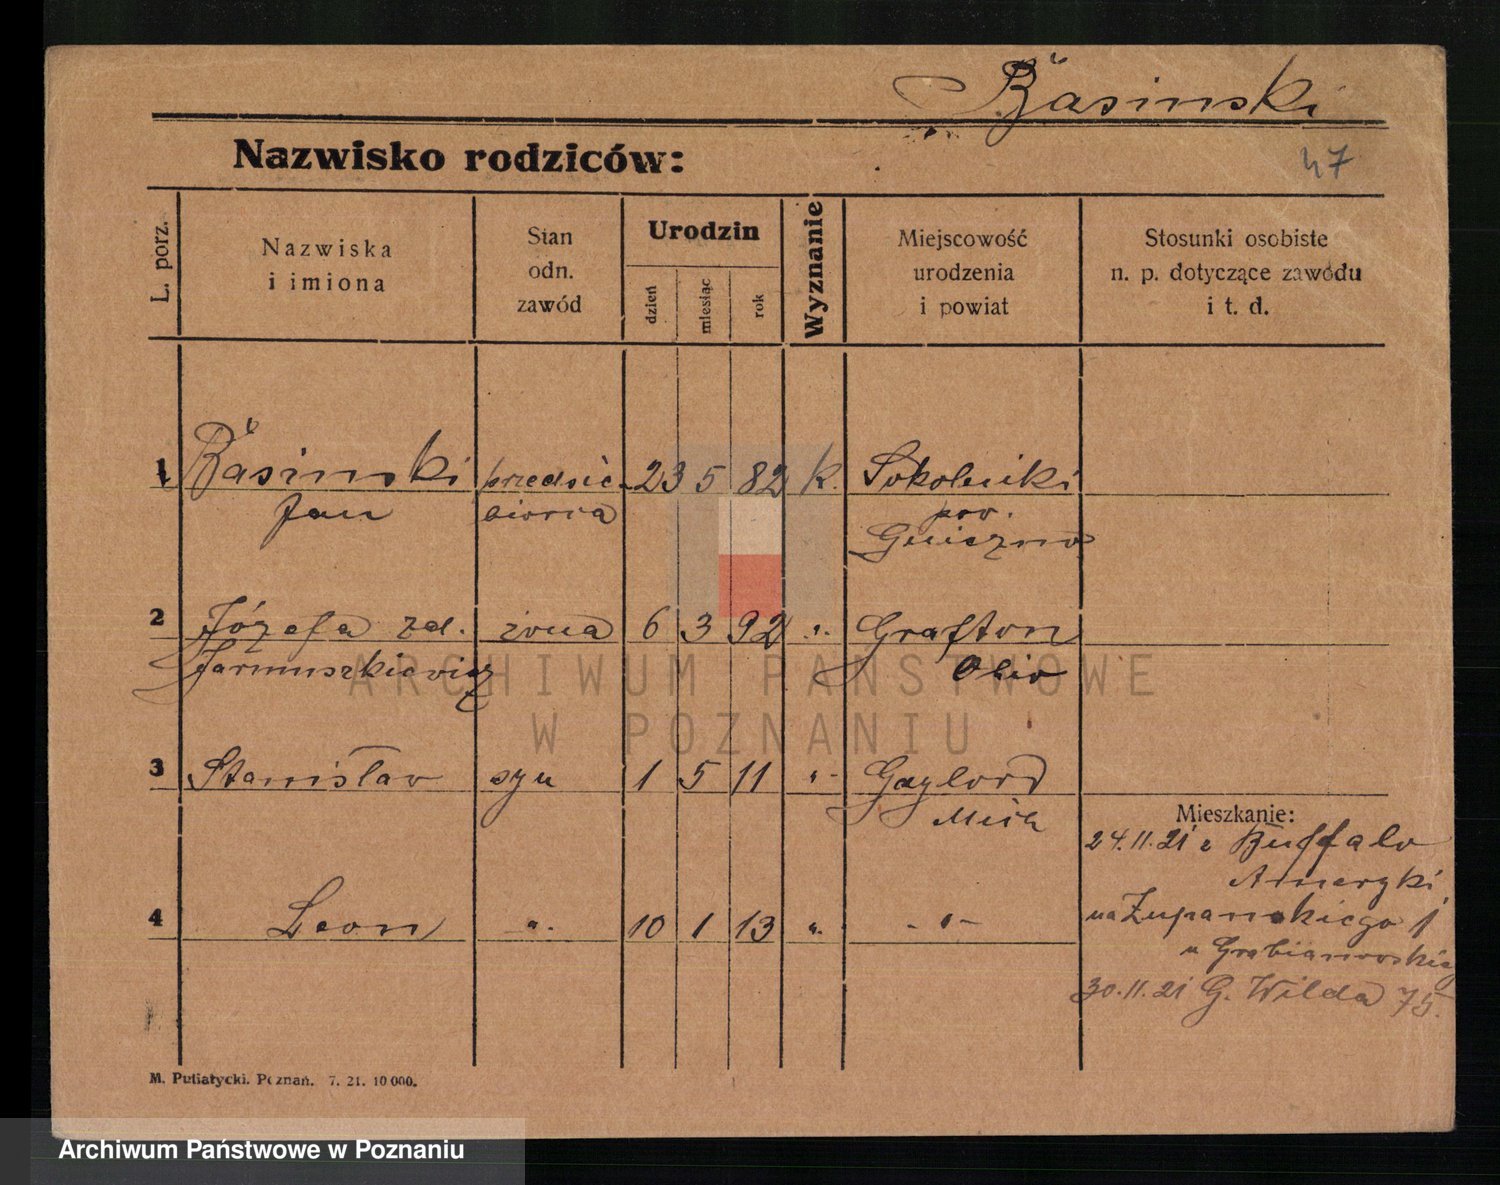 Basinski
Nazwisko rodziców:
47
L. porz.
Nazwiska
i imiona
Stan
odn.
zawód
Urodzin
dzień
miesiąc
rok
Wyznanie
Miejscowość
urodzenia
i powiat
Stosunki osobiste
n. p. dotyczące zawodu
i t. d.
1 Basinski przedsię- 23 5 82 k. Sokolniki
Jan biorca pow.
Gniezno
2 Józefa zd. żona 6 3 92 „ Grafton
Jarmuszkiewicz Ohio
3 Stanisław syn 1 5 11 „ Gaylord
Mich
Mieszkanie:
24.11.21 z Buffalo
Ameryki
4 Leon „ 10 1 13 „ - „ -
na Żupańskiego 1
u Grabianowskiej
30.11.21 G. Wilda 75.
M. Putiatycki. Poznań. 7. 21. 10 000.
ARCHIWUM PAŃSTWOWE
W POZNANIU
Archiwum Państwowe w Poznaniu